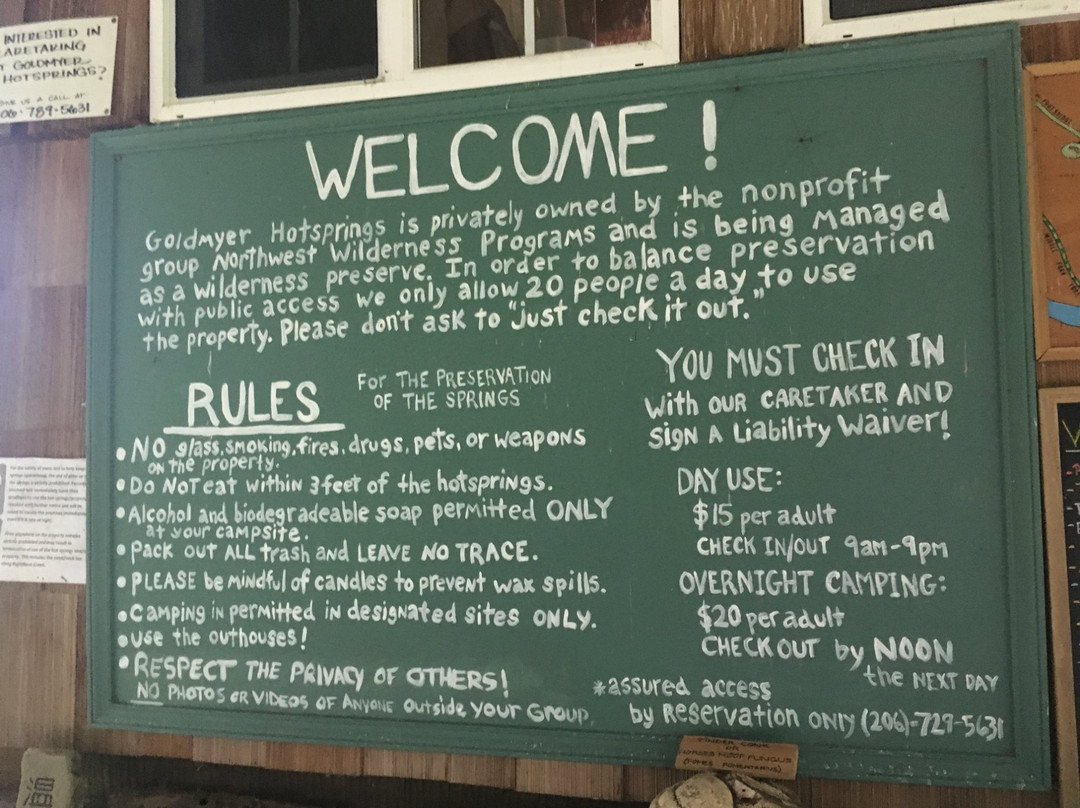 INTERESTED IN
CARETAKING
AT GOLDMYER
HOTSPRINGS?
GIVE US A CALL AT
206-789-5631
WELCOME!
Goldmyer Hotsprings is privately owned by the nonprofit
group Northwest Wilderness Programs and is being managed
as a wilderness preserve. In order to balance preservation
with public access we only allow 20 people a day to use
the property. Please don't ask to "just check it out."
RULES
FOR THE PRESERVATION
OF THE SPRINGS
• NO glass, smoking, fires, drugs, pets, or weapons
on the property.
• Do NOT eat within 3 feet of the hotsprings.
• Alcohol and biodegradeable soap permitted ONLY
at your campsite.
• Pack out ALL trash and LEAVE NO TRACE.
• PLEASE be mindful of candles to prevent wax spills.
• Camping in permitted in designated sites ONLY.
• use the outhouses!
• RESPECT THE PRIVACY OF OTHERS!
NO PHOTOS OR VIDEOS OF ANYONE outside your Group.
YOU MUST CHECK IN
with OUR CARETAKER AND
sign A Liability Waiver!
DAY USE:
$15 per adult
CHECK IN/OUT 9am-9pm
OVERNIGHT CAMPING:
$20 per adult
CHECK OUT by NOON
the NEXT DAY
*assured access
by Reservation ONLY (206)-729-5631
湯